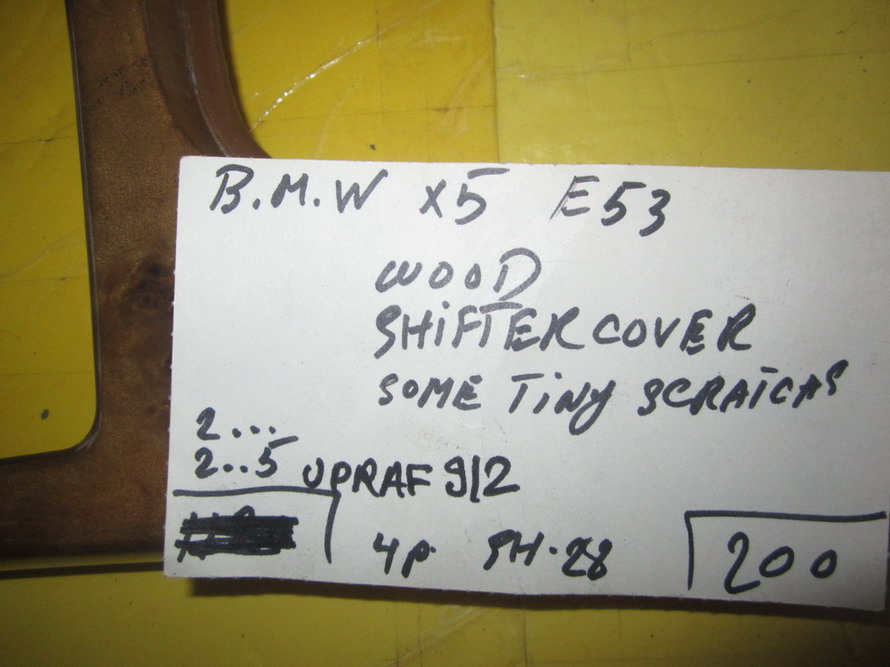 B.M.W X5 E53
WOOD
SHiFTER COVER
SOME TiNY SCRATCAS
2...
2..5 UPRAF 9/2
4p. SH.28
200